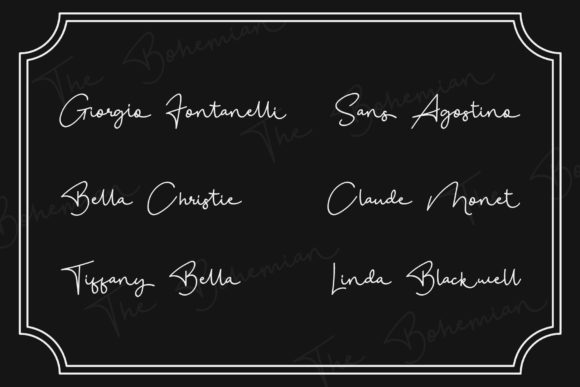 The Bohemian
The Bohemian
The Bohemian
Giorgio Fontanelli
Sans Agostino
Bella Christie
Claude Monet
Tiffany Bella
Linda Blackwell
The Bohemian
The Bohemian